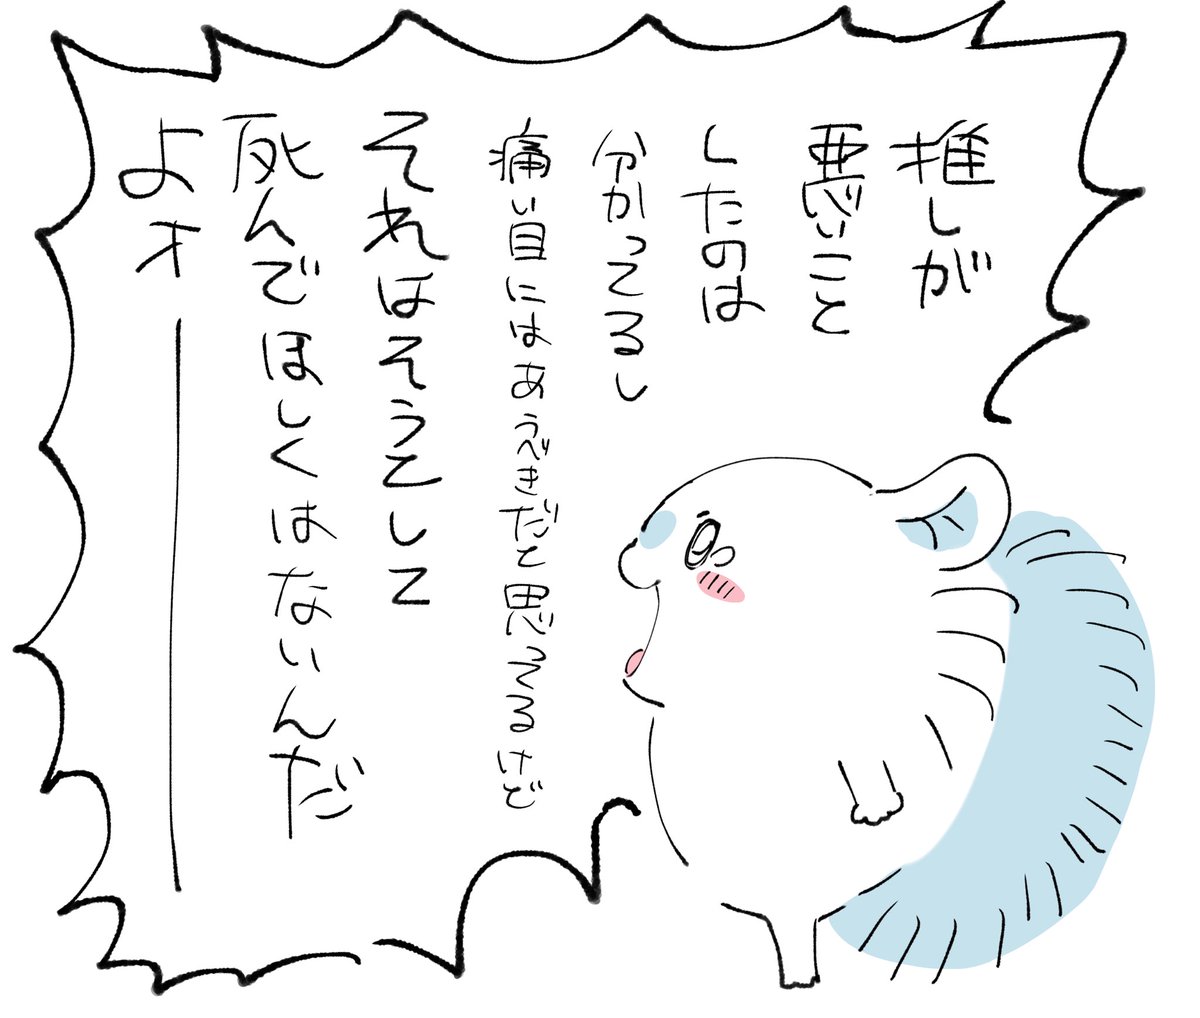 推しが
悪いこと
したのは
分かってるし
痛い目にはあうべきだと思ってるけど
それはそうとして
死んでほしくはないんだ
よォー